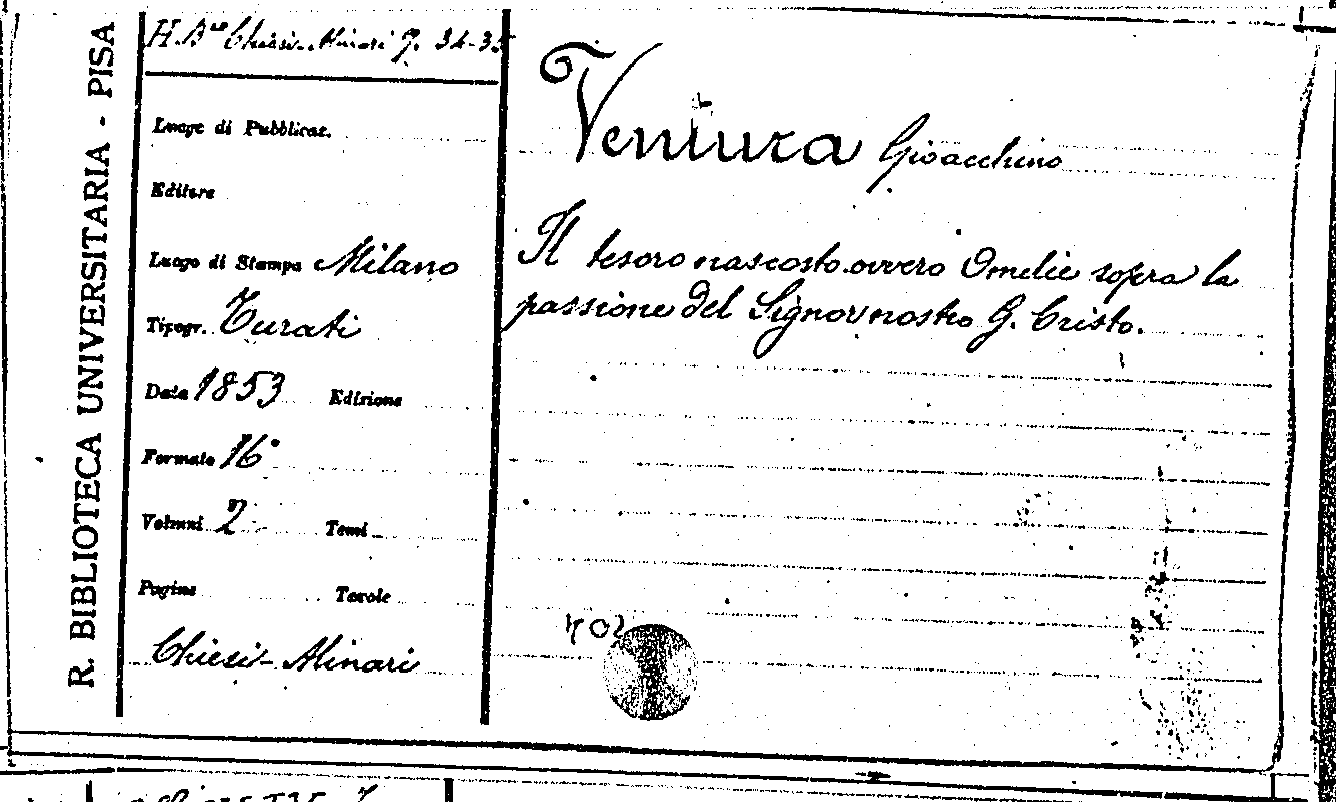 R. BIBLIOTECA UNIVERSITARIA - PISA
H. Bne Chiesi-Alinari 7. 34-35
Luogo di Pubblicaz.
Editore
Luogo di Stampa Milano
Tipogr. Turati
Data 1853 Edizione
Formato 16°
Volumi 2 Tomi
Pagine Tavole
Chiesi-Alinari
Ventura Gioacchino
Il tesoro nascosto ovvero Omelie sopra la
passione del Signor nostro G. Cristo.